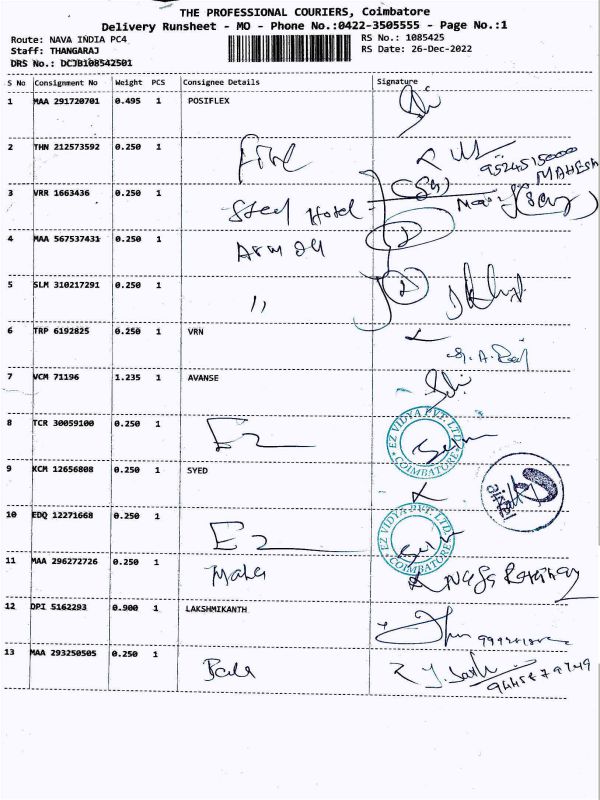 THE PROFESSIONAL COURIERS, Coimbatore
Delivery Runsheet - MO - Phone No.:0422-3505555 - Page No.:1
Route: NAVA INDIA PC4 RS No.: 1085425
Staff: THANGARAJ RS Date: 26-Dec-2022
DRS No.: DCJB108542501
S No Consignment No Weight PCS Consignee Details Signature
1 MAA 291720701 0.495 1 POSIFLEX
2 THN 212573592 0.250 1 Five
9524515000
MAHESH
3 VRR 1663436 0.250 1 Steel Hotel
4 MAA 567537431 0.250 1
5 SLM 310217291 0.250 1 "
6 TRP 6192825 0.250 1 VRN
7 VCM 71196 1.235 1 AVANSE
8 TCR 30059100 0.250 1 Ez EZ VIDYA PVT. LTD. COIMBATORE
9 KCM 12656808 0.250 1 SYED
10 EDQ 12271668 0.250 1 Ez EZ VIDYA PVT. LTD. COIMBATORE
11 MAA 296272726 0.250 1 Maha
12 DPI 5162293 0.900 1 LAKSHMIKANTH
13 MAA 293250505 0.250 1 Bala